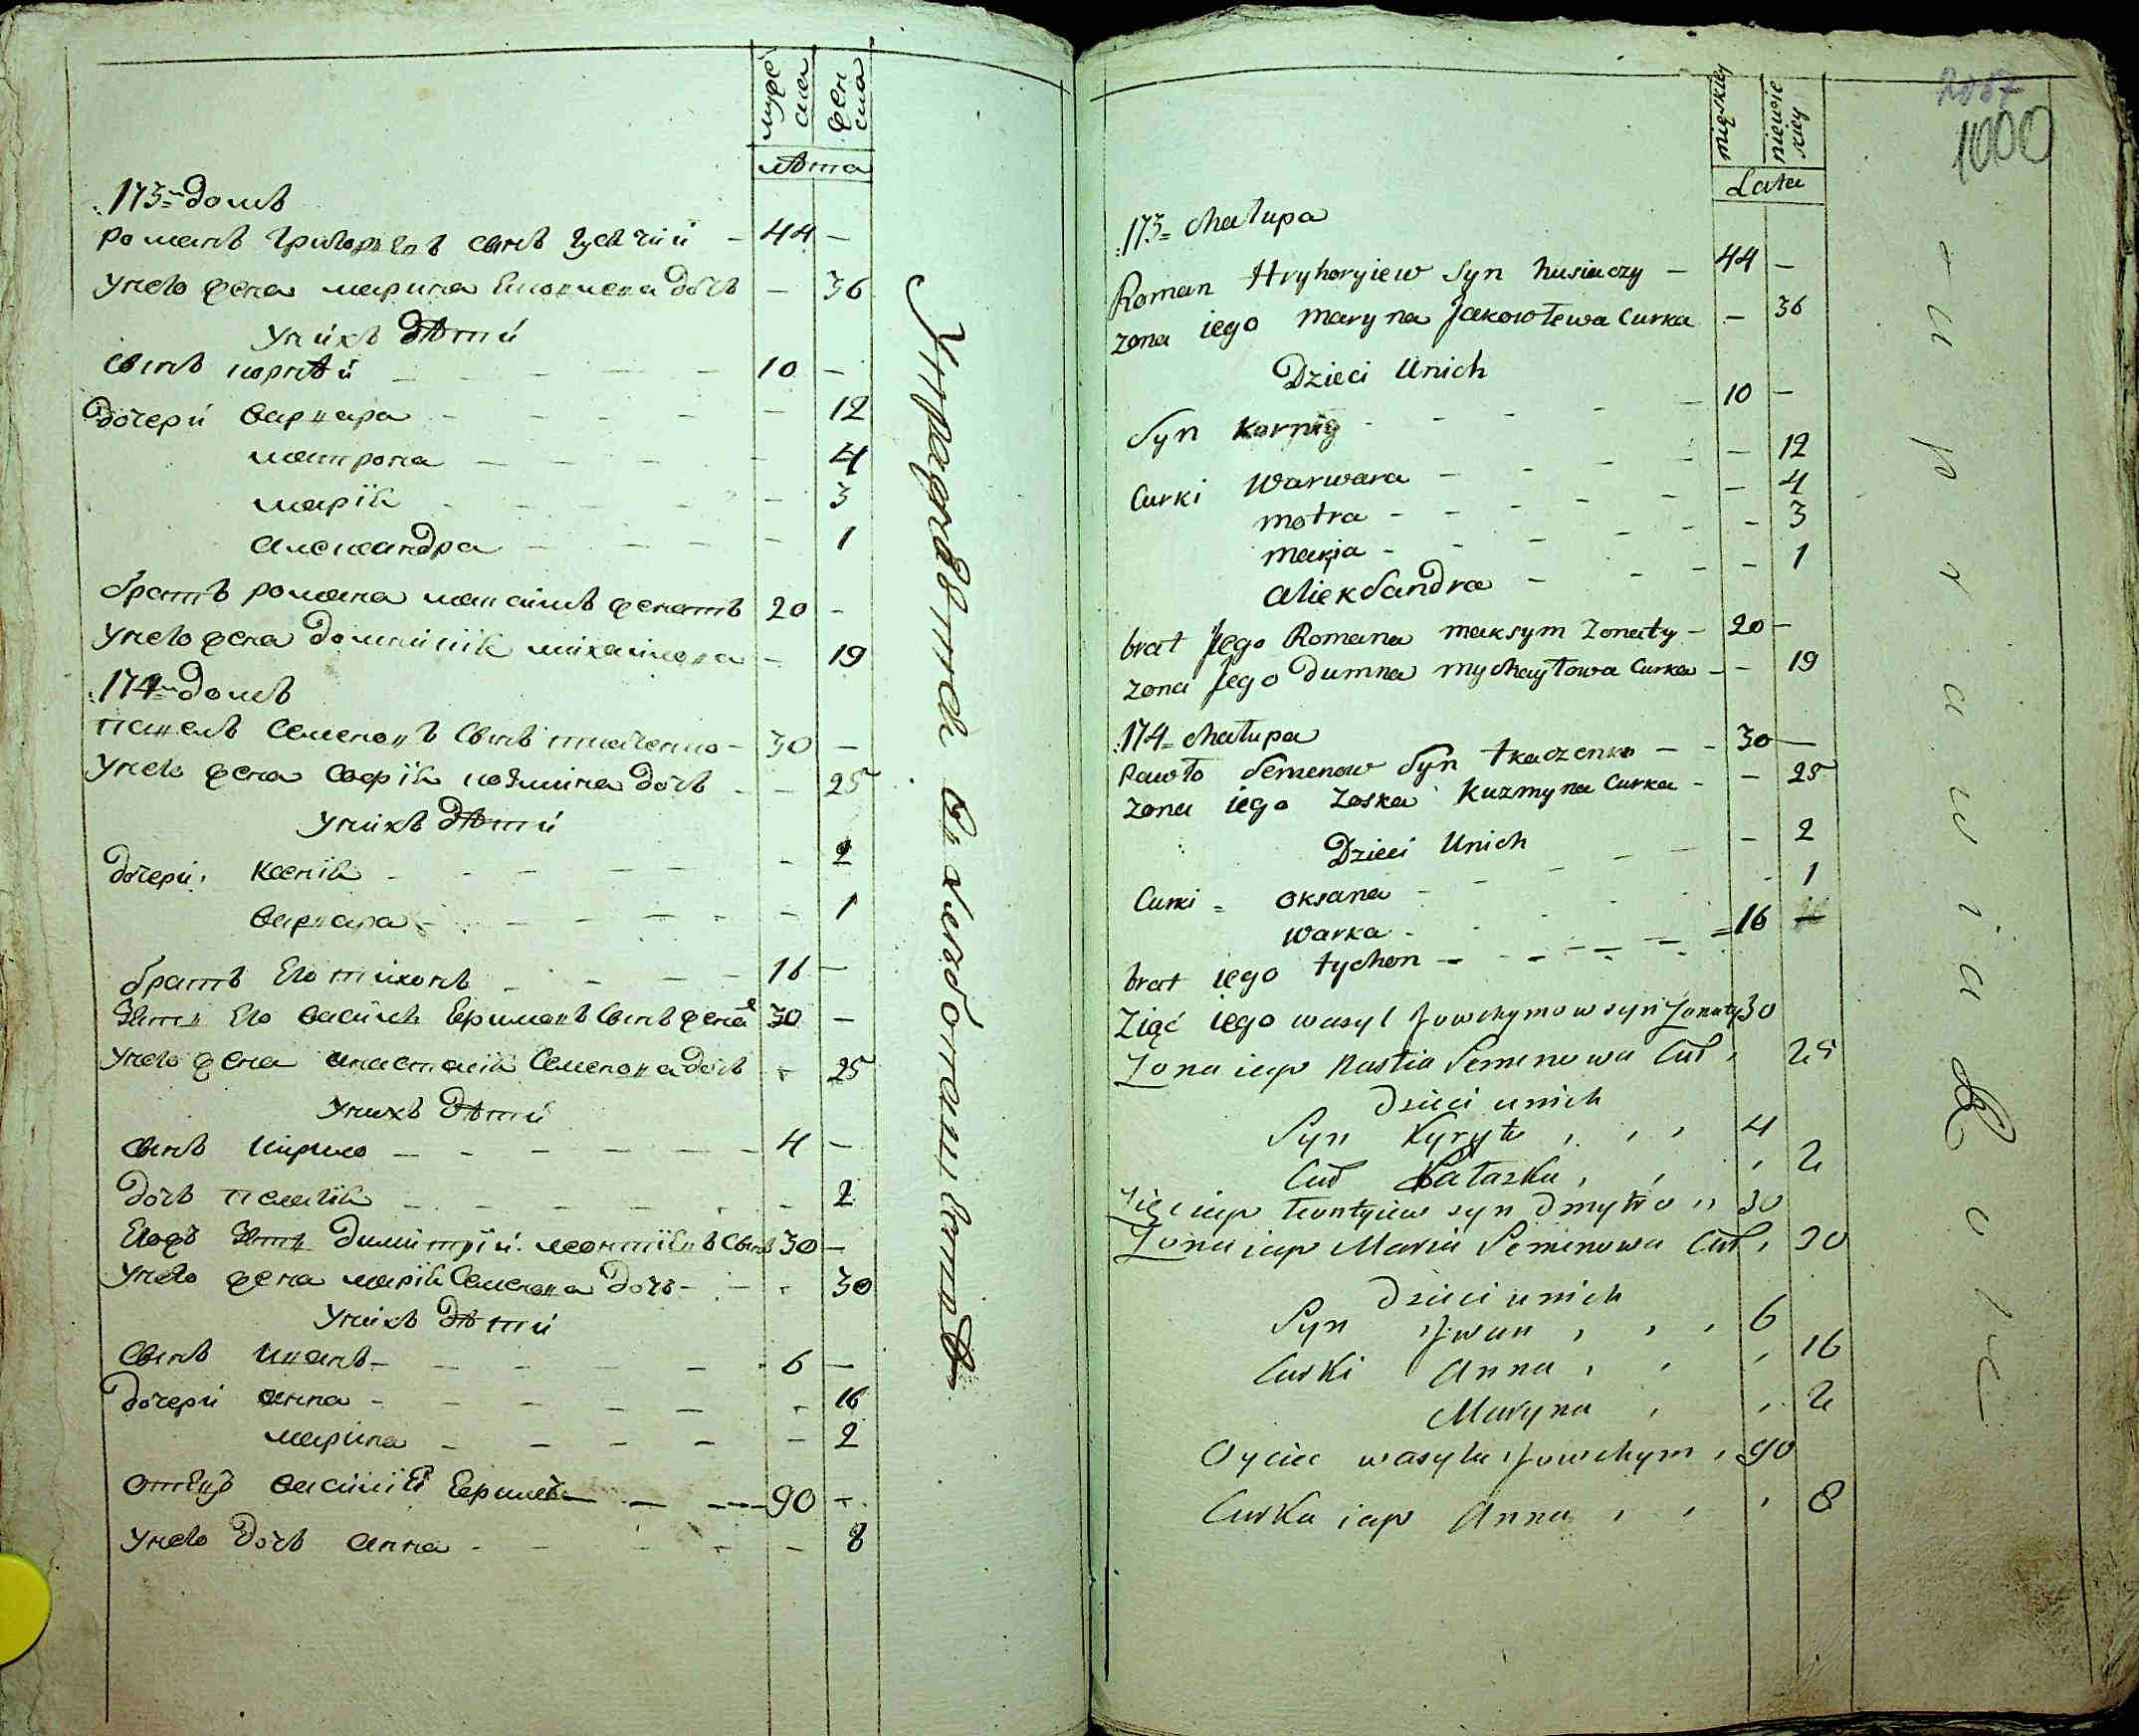 мужеска
женска
лѣта
173= домъ
Романъ Григорьевъ сынъ гусячій - 44 -
Унего жена марина Яковлева дочь - 36
Унихъ дѣти
Сынъ корнѣй - - - - - 10 -
дочери варвара - - - - - 12
матрона - - - - - 4
марія - - - - 3
александра - - - - - 1
братъ романа максимъ женатъ 20 -
Унего жена домникія михайлова - 19
174= домъ
Павелъ Семеновъ сынъ ткаченко - 30 -
Унего жена софія козмина дочь - - 25
Унихъ дѣти
дочери ксенія - - - - - - 2
варвара - - - - - - 1
братъ Его тихонъ - - - - 16 -
Зять Его василь Ефимовъ сынъ женатъ 30 -
Унего жена анастасія Семенова дочь - 25
Унихъ дѣти
сынъ кирило - - - - - - 4 -
дочь пелагія - - - - - - 2
Егожъ Зять димитрій леонтіевъ сынъ 30 -
Унего жена марія Семенова дочь - - - 30
Унихъ дѣти
Сынъ иванъ - - - - - - 6 -
дочери анна - - - - - - 16
марина - - - - - 2
отецъ василія Ефимъ - - - 90 -
Унего дочь анна - - - - - 8
Упражняются въ хлеборобствѣ
męzskiey
niewieskiey
Lata
2087
1000
173= chałupa
Roman Hryhoryiew Syn husiaczy - 44 -
zona iego maryna Jakowlewa Curka - 36
Dzieci Unich
Syn Korniy - - - - - 10 -
Curki Warwara - - - - - 12
motra - - - - - - 4
marja - - - - - - 3
alieksandra - - - - - 1
brat Jego Romana maksym zonaty - 20 -
zona Jego Dumna mychayłowa Curka - - 19
174= chałupa
Pawło Semenow Syn tkaczenko - - 30 -
zona iego zoska kuzmyna Curka - - 25
Dzieci Unich
Curki = oksana - - - - - 2
warka - - - - 1
brat iego tychon - - - - - = 16 -
Ziąć iego wasyl Jowchymow syn Zonaty 30
Zona iego Nastia Semenowa Cur. 25
Dzieci unich
Syn Kyryło , , , 4
Cur Pałazka , , , 2
Zięć iego Leontyiew syn Dmytro ,, 30
Zona iego Maria Semenowa Cur, 30
Dzieci unich
Syn Jwan , , , 6
Curki Anna , , , 16
Maryna , , 2
Oyciec wasyla Jowchym , 90
Curka iego Anna , , , 8
uprawia Role